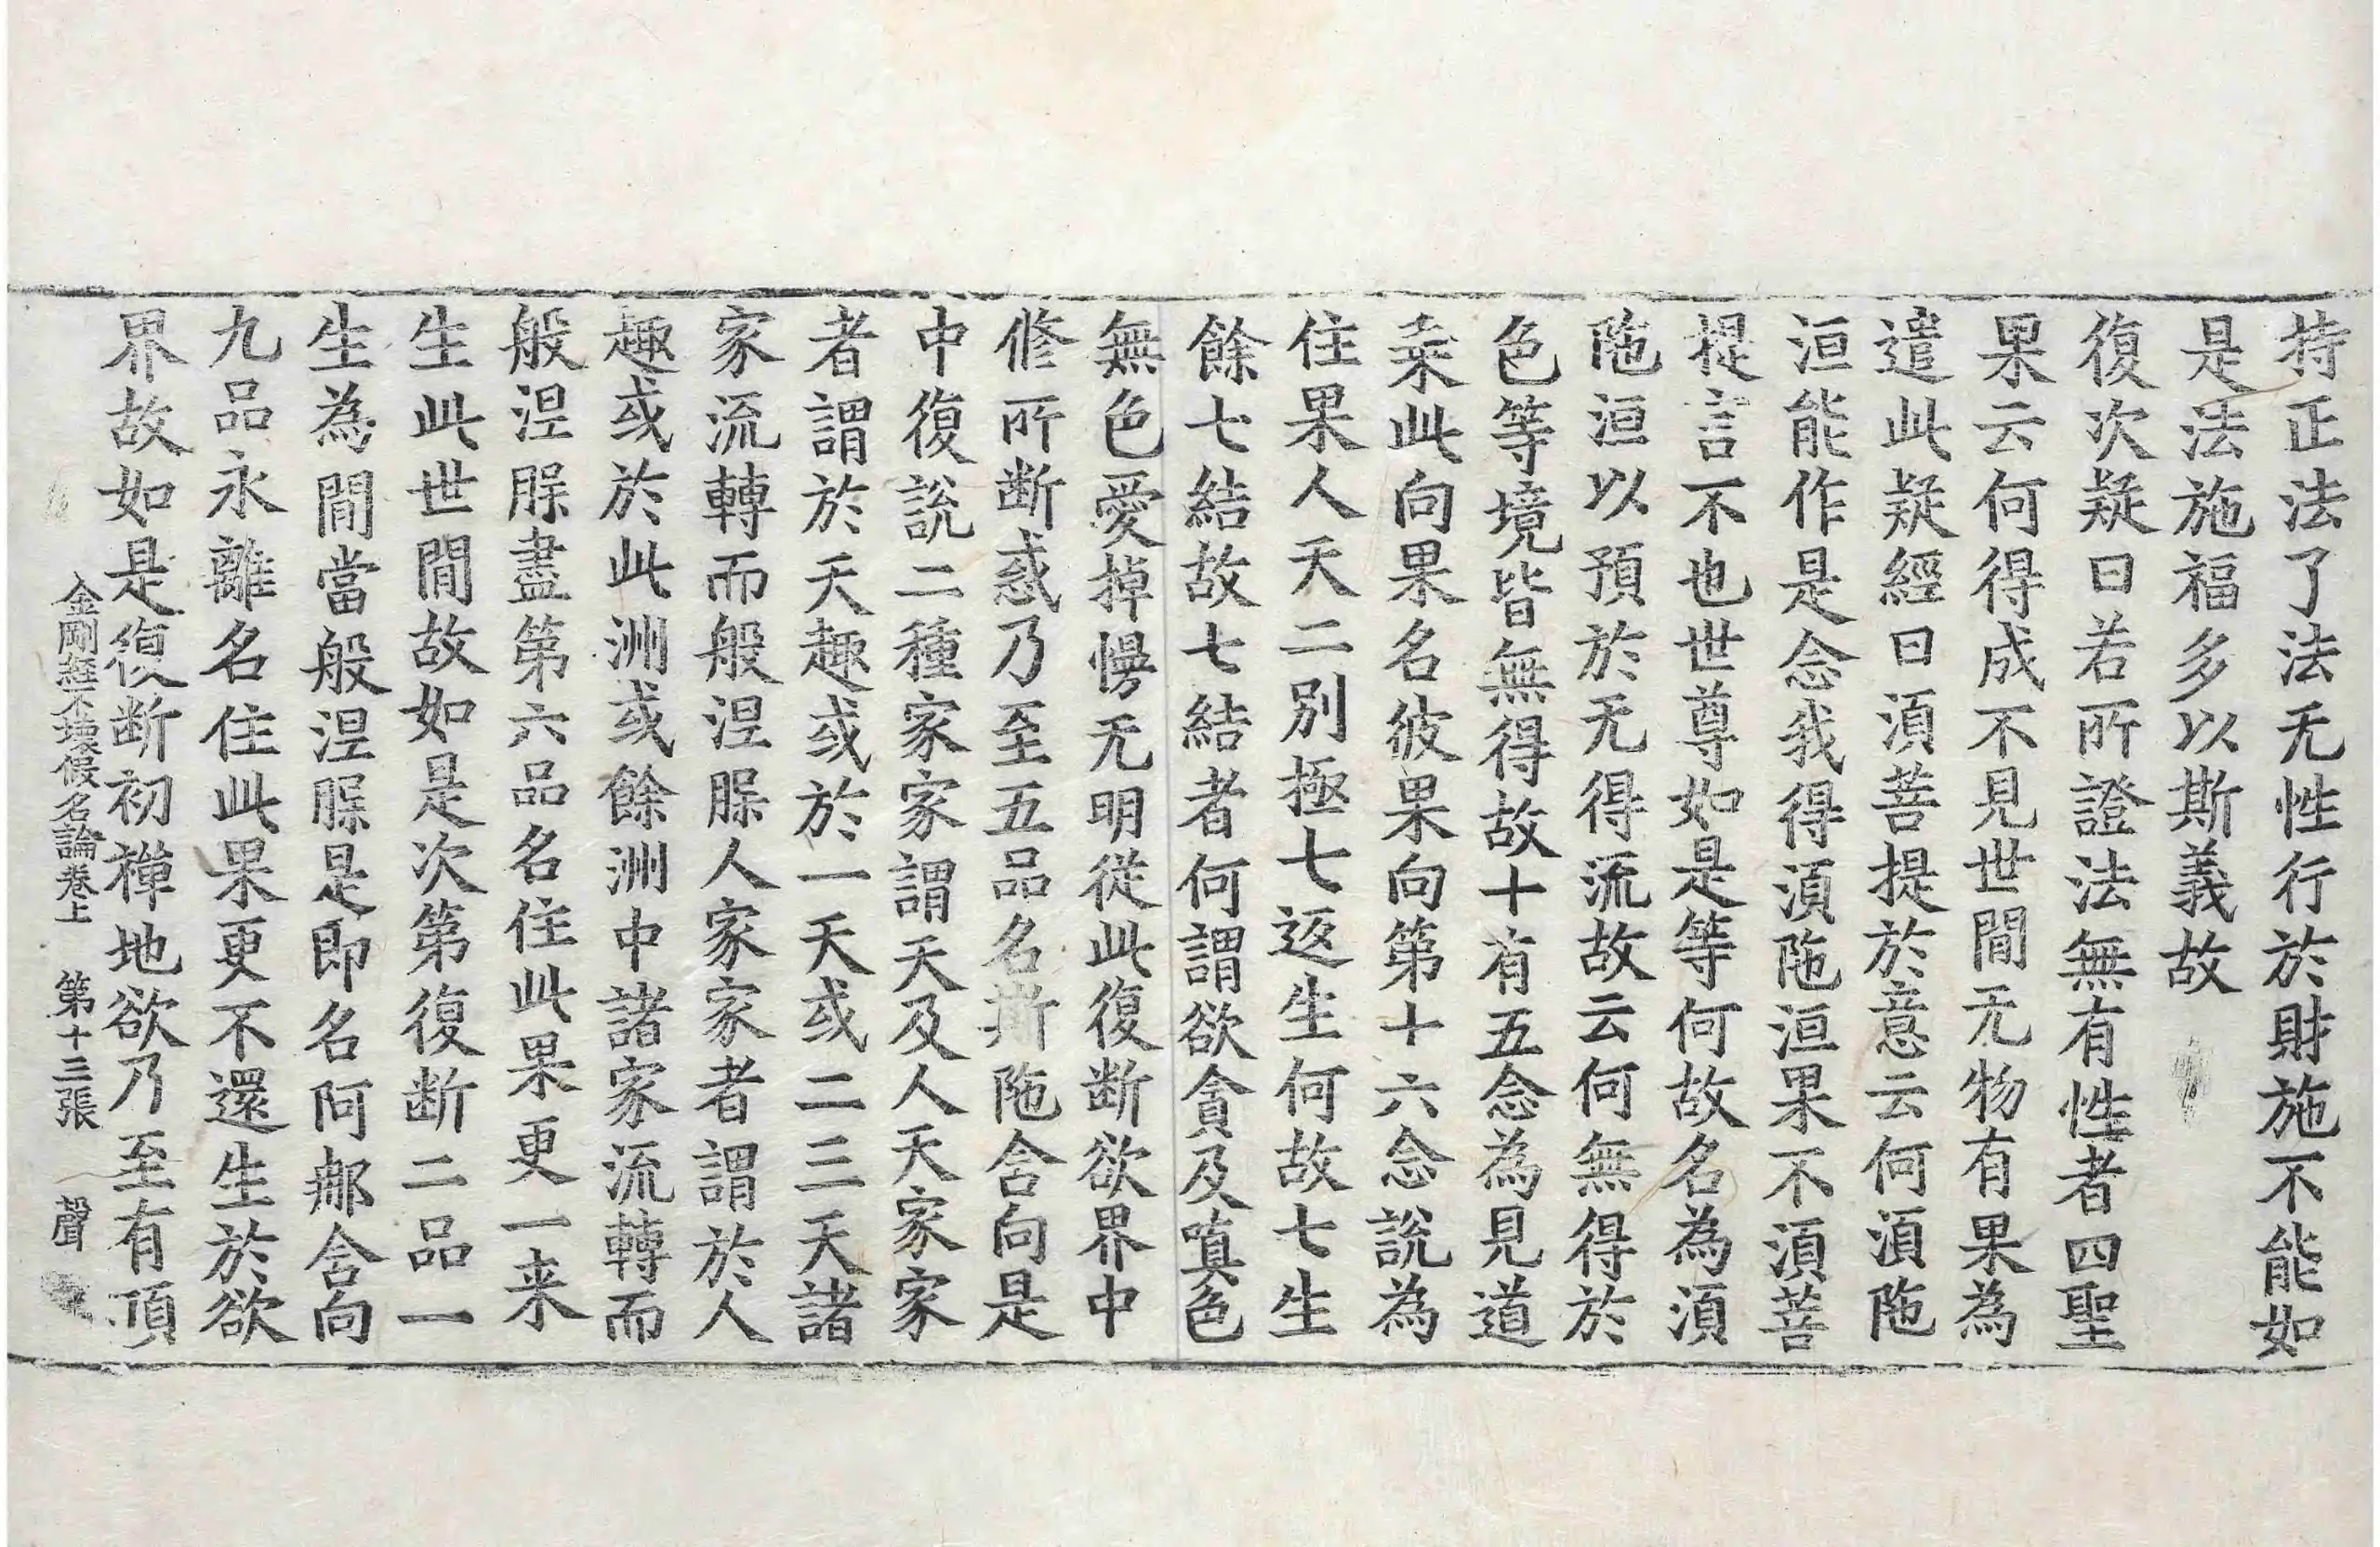 持正法了法无性行於財施不能如
是法施福多以斯義故
復次疑曰若所證法無有性者四聖
果云何得成不見世間无物有果為
遣此疑經曰湏菩提於意云何湏陁
洹能作是念我得湏陁洹果不湏菩
提言不也世尊如是等何故名為湏
陁洹以預於无得流故云何無得於
色等境皆無得故十有五念為見道
乘此向果名彼果向第十六念說為
住果人天二別極七返生何故七生
餘七結故七結者何謂欲貪及嗔色
無色愛掉慢无明從此復断欲界中
修所断惑乃至五品名斯陁含向是
中復說二種家家謂天及人天家家
者謂於天趣或於一天或二三天諸
家流轉而般涅槃人家家者謂於人
趣或於此洲或餘洲中諸家流轉而
般涅槃盡第六品名住此果更一来
生此世間故如是次第復断二品一
生為間當般涅槃是即名阿那含向
九品永離名住此果更不還生於欲
界故如是復断初禪地欲乃至有頂
金剛經不壞假名論卷上　第十三張　聲